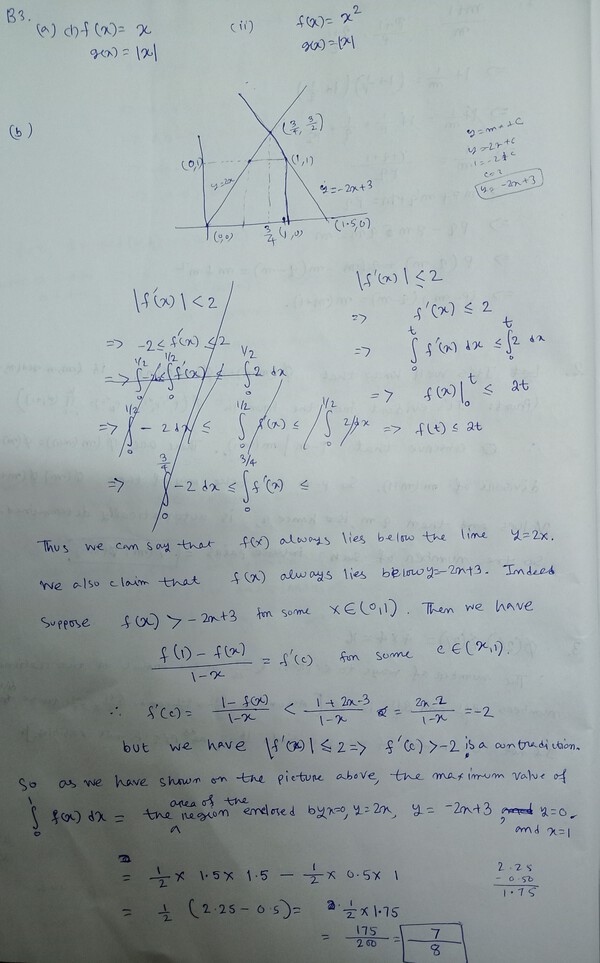 B3.
(a) (i) f(x) = x (ii) f(x) = x²
g(x) = |x| g(x) = |x|
(b)
(3/4, 3/2)
(0,1)
(1,1)
y=2x
y=-2x+3
(0,0)
3/4
(1,0)
(1.5,0)
y=mx+c
y=-2x+c
1=-2+c
c=3
y=-2x+3
|f'(x)| < 2
=> -2 ≤ f'(x) ≤ 2
=> ∫₀^{1/2} -2 ≤ ∫₀^{1/2} f'(x) ≤ ∫₀^{1/2} 2 dx
=> ∫₀^{1/2} -2 dx ≤ ∫₀^{1/2} f'(x) ≤ ∫₀^{1/2} 2 dx
=> ∫₀^{3/4} -2 dx ≤ ∫₀^{3/4} f'(x) ≤
|f'(x)| ≤ 2
=> f'(x) ≤ 2
=> ∫₀^t f'(x) dx ≤ ∫₀^t 2 dx
=> f(x)|₀^t ≤ 2t
=> f(t) ≤ 2t
Thus we can say that f(x) always lies below the line y=2x.
We also claim that f(x) always lies below y=-2x+3. Indeed
suppose f(x) > -2x+3 for some x∈(0,1). Then we have
(f(1) - f(x))/(1-x) = f'(c) for some c∈(x,1).
∴ f'(c) = (1-f(x))/(1-x) < (1+2x-3)/(1-x) = (2x-2)/(1-x) = -2
but we have |f'(x)| ≤ 2 => f'(c) > -2 is a contradiction.
So as we have shown on the picture above, the maximum value of
∫₀¹ f(x) dx = the area of the region enclosed by x=0, y=2x, y = -2x+3, y=0.
and x=1
= 1/2 × 1.5 × 1.5 - 1/2 × 0.5 × 1
= 1/2 (2.25 - 0.5) = 1/2 × 1.75
= 175/200 = 7/8
2.25
- 0.50
1.75